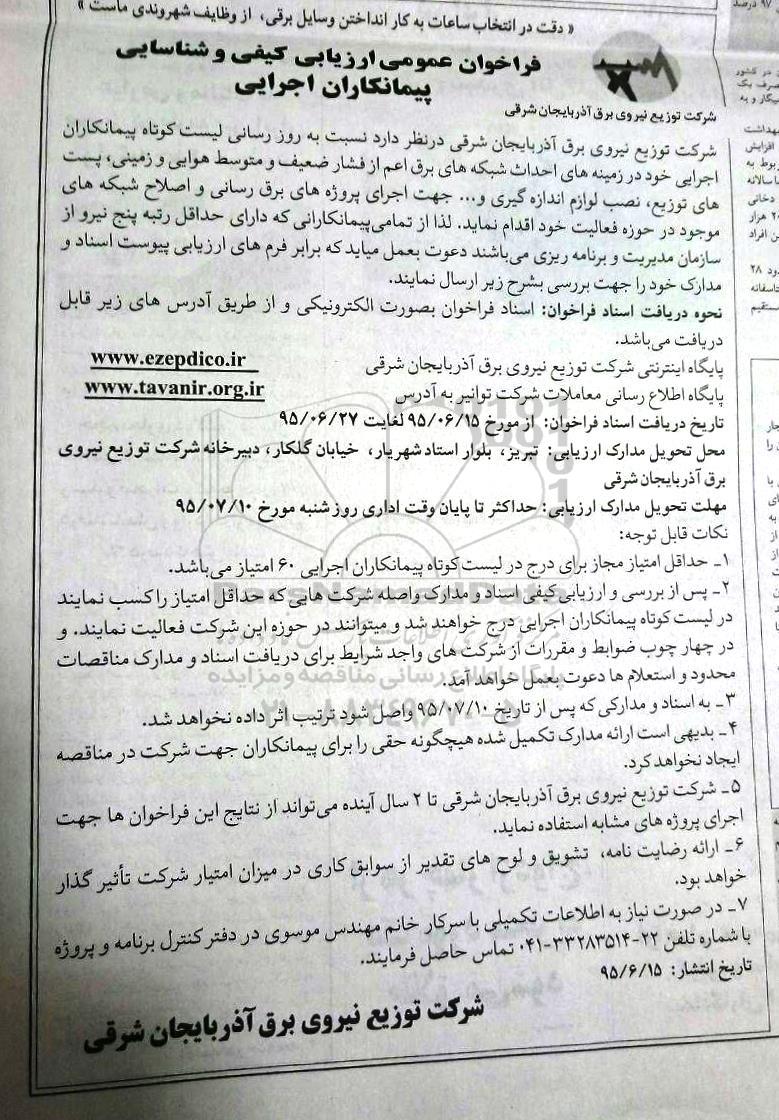 « دقت در انتخاب ساعات به کار انداختن وسایل برقی، از وظایف شهروندی ماست »
فراخوان عمومی ارزیابی کیفی و شناسایی
پیمانکاران اجرایی
شرکت توزیع نیروی برق آذربایجان شرقی
شرکت توزیع نیروی برق آذربایجان شرقی درنظر دارد نسبت به روز رسانی لیست کوتاه پیمانکاران
اجرایی خود در زمینه های احداث شبکه های برق اعم از فشار ضعیف و متوسط هوایی و زمینی، پست
های توزیع، نصب لوازم اندازه گیری و... جهت اجرای پروژه های برق رسانی و اصلاح شبکه های
موجود در حوزه فعالیت خود اقدام نماید. لذا از تمامی پیمانکارانی که دارای حداقل رتبه پنج نیرو از
سازمان مدیریت و برنامه ریزی می‌باشند دعوت بعمل میاید که برابر فرم های ارزیابی پیوست اسناد و
مدارک خود را جهت بررسی بشرح زیر ارسال نمایند.
نحوه دریافت اسناد فراخوان: اسناد فراخوان بصورت الکترونیکی و از طریق آدرس های زیر قابل
دریافت می‌باشد.
پایگاه اینترنتی شرکت توزیع نیروی برق آذربایجان شرقی www.ezepdico.ir
پایگاه اطلاع رسانی معاملات شرکت توانیر به آدرس www.tavanir.org.ir
تاریخ دریافت اسناد فراخوان: از مورخ ۹۵/۰۶/۱۵ لغایت ۹۵/۰۶/۲۷
محل تحویل مدارک ارزیابی: تبریز، بلوار استاد شهریار، خیابان گلکار، دبیرخانه شرکت توزیع نیروی
برق آذربایجان شرقی
مهلت تحویل مدارک ارزیابی: حداکثر تا پایان وقت اداری روز شنبه مورخ ۹۵/۰۷/۱۰
نکات قابل توجه:
۱ـ حداقل امتیاز مجاز برای درج در لیست کوتاه پیمانکاران اجرایی ۶۰ امتیاز می‌باشد.
۲ـ پس از بررسی و ارزیابی کیفی اسناد و مدارک واصله شرکت هایی که حداقل امتیاز را کسب نمایند
در لیست کوتاه پیمانکاران اجرایی درج خواهند شد و میتوانند در حوزه این شرکت فعالیت نمایند. و
در چهار چوب ضوابط و مقررات از شرکت های واجد شرایط برای دریافت اسناد و مدارک مناقصات
محدود و استعلام ها دعوت بعمل خواهد آمد.
۳ـ به اسناد و مدارکی که پس از تاریخ ۹۵/۰۷/۱۰ واصل شود ترتیب اثر داده نخواهد شد.
۴ـ بدیهی است ارائه مدارک تکمیل شده هیچگونه حقی را برای پیمانکاران جهت شرکت در مناقصه
ایجاد نخواهد کرد.
۵ـ شرکت توزیع نیروی برق آذربایجان شرقی تا ۲ سال آینده می‌تواند از نتایج این فراخوان ها جهت
اجرای پروژه های مشابه استفاده نماید.
۶ـ ارائه رضایت نامه، تشویق و لوح های تقدیر از سوابق کاری در میزان امتیار شرکت تأثیر گذار
خواهد بود.
۷ـ در صورت نیاز به اطلاعات تکمیلی با سرکار خانم مهندس موسوی در دفتر کنترل برنامه و پروژه
با شماره تلفن ۲۲-۳۳۲۸۳۵۱۴-۰۴۱ تماس حاصل فرمایند.
تاریخ انتشار: ۹۵/۶/۱۵
شرکت توزیع نیروی برق آذربایجان شرقی